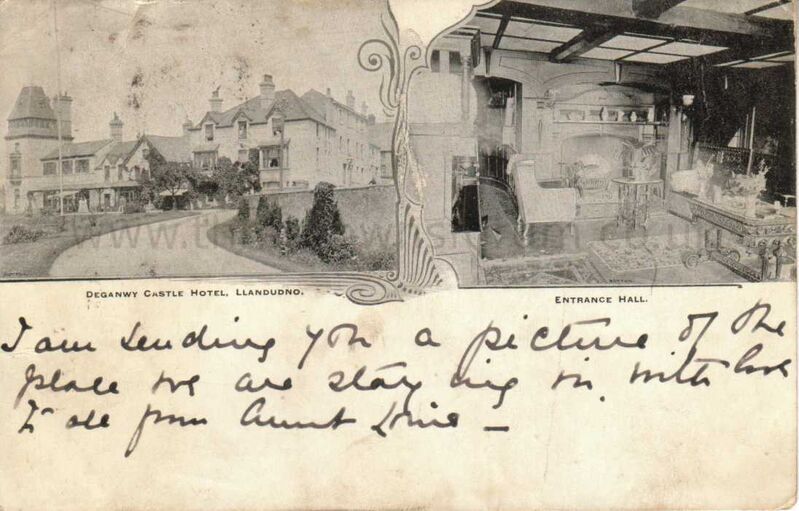 DEGANWY CASTLE HOTEL, LLANDUDNO.
ENTRANCE HALL.
I am sending you a picture of the
place we are staying in. with love
to all from Aunt